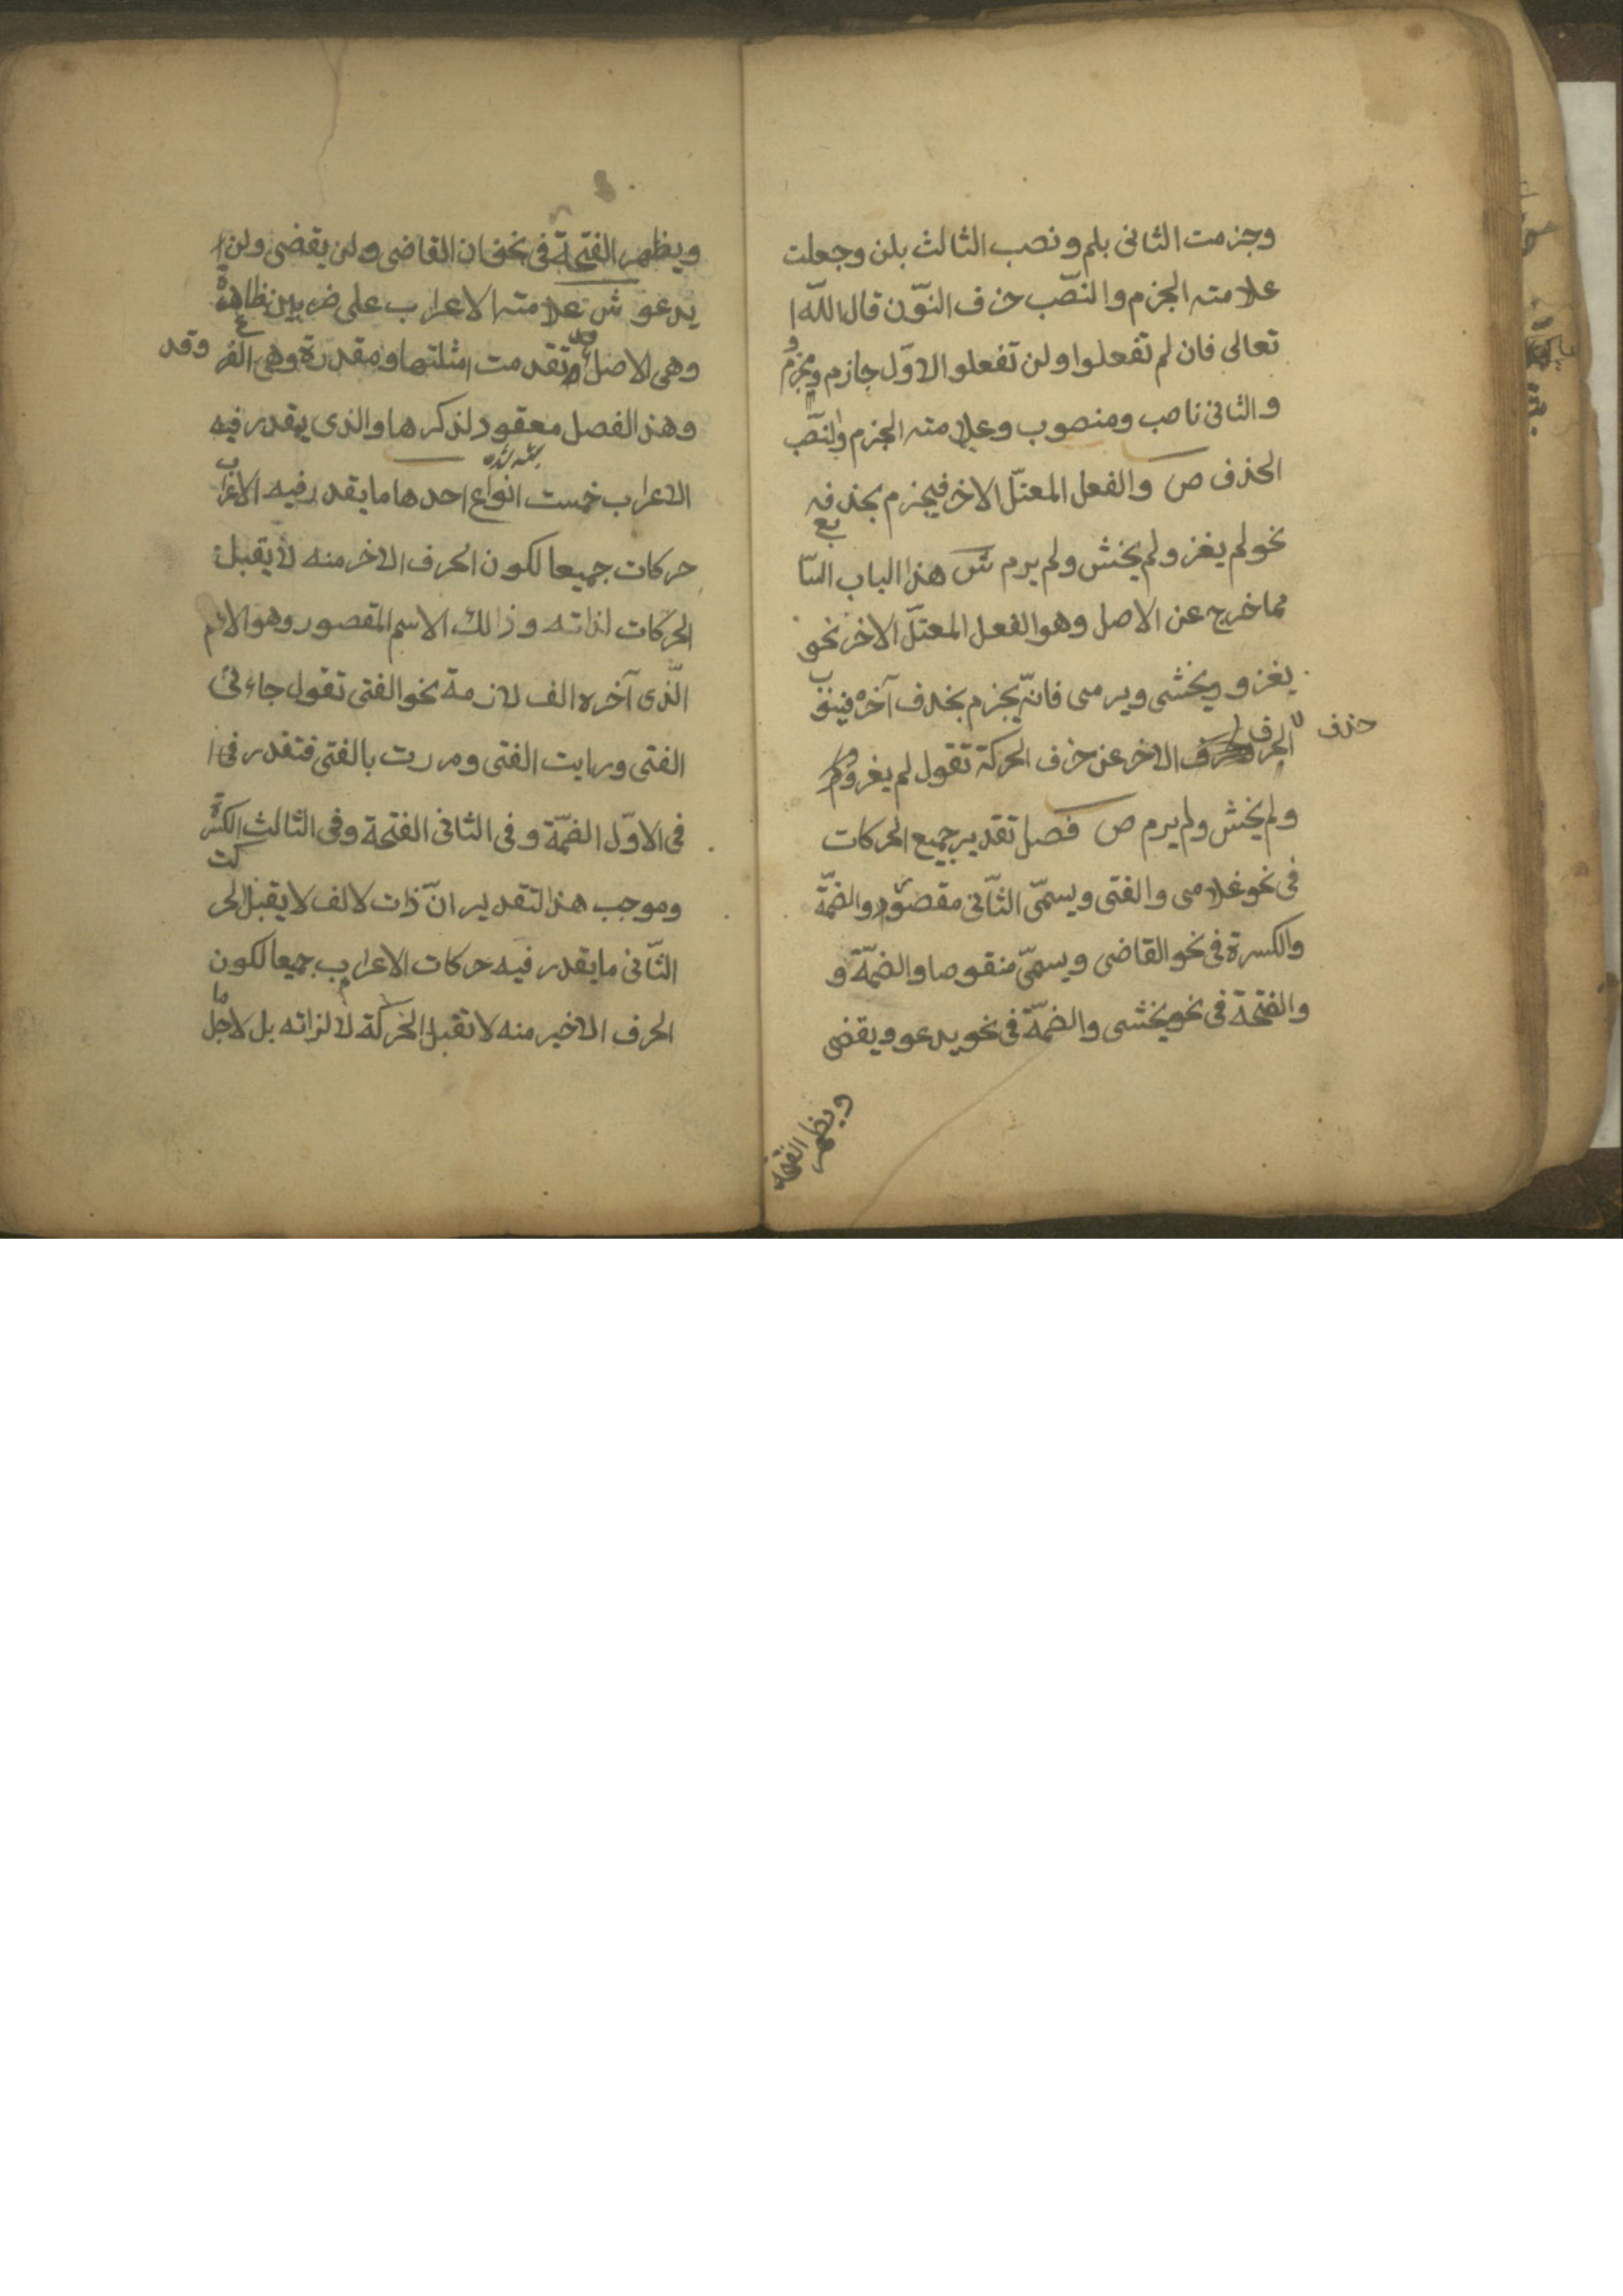 وجزمت الثانى بلم ونصب الثالث بلن وجعلت
علامته الجزم والنصّب حذف النوّن قال اللّه ا
تعالى فان لم تفعلوا ولن تفعلو الاوّل جازم ومجزوم
والثانى ناصب ومنصوب وعلامته الجزم والنصّب
الحذف ص والفعل المعتلّ الاخر فيجزم بحذفه
نحو لم يغز ولم يخش ولم يرم ش هذا الباب السّابع
مما خرج عن الاصل وهو الفعل المعتلّ الاخر نحو
يغزو ويخشى ويرمى فانّه يجزم بحذف آخره فينوب
حذف
الحرف الاخر عن حذف الحركة تقول لم يغز
ولم يخش ولم يرم ص فصل تقدير جميع الحركات
فى نحو غلامى والفتى ويسمّى الثّانى مقصورا والضمّة
والكسرة فى نحو القاضى ويسمّى منقوصا والضمّة و
والفتحة فى نحو يخشى والضمّة فى نحو يدعو ويقضى
ويظهر الفتحة
ويظهر الفتحة فى نحو ان القاضى ولن يقضى ولن ا
يدعو ش علامته الاعراب على ضربين ظاهرة
وهى الاصل وقد تقدمت امثلتها ومقدرة وهى الفرع
وقد
وهذ الفصل معقود لذكرها والذى يقدر فيه
الاعراب خمست انواع احدها ما يقدر فيه الاعراب
حركات جميعا لكون الحرف الاخر منه لا يقبل
الحركات لذاته وذالك الاسم المقصور وهو الاسم
الّذى آخره الف لازمة نحو الفتى تقول جاءنى
الفتى ورايت الفتى ومررت بالفتى فتقدر فى ا
فى الاوّل الضمّة وفى الثانى الفتحة وفى الثالث الكسرة
وموجب هذ التقدير انّ ذات لالف لا يقبل الحركت
الثّانى ما يقدر فيه حركات الاعراب جميعا لكون
الحرف الاخير منه لا تقبل الحركة لا لزاته بل لاجل ما